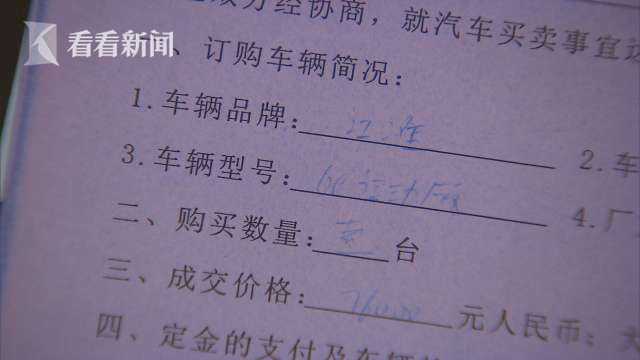 看看新闻
分经协商，就汽车买卖事宜达
、订购车辆简况：
1.车辆品牌：江淮 2.车
3.车辆型号：运动版 4.厂
二、购买数量：壹台
三、成交价格：76000元人民币；大
四、定金的支付及车辆